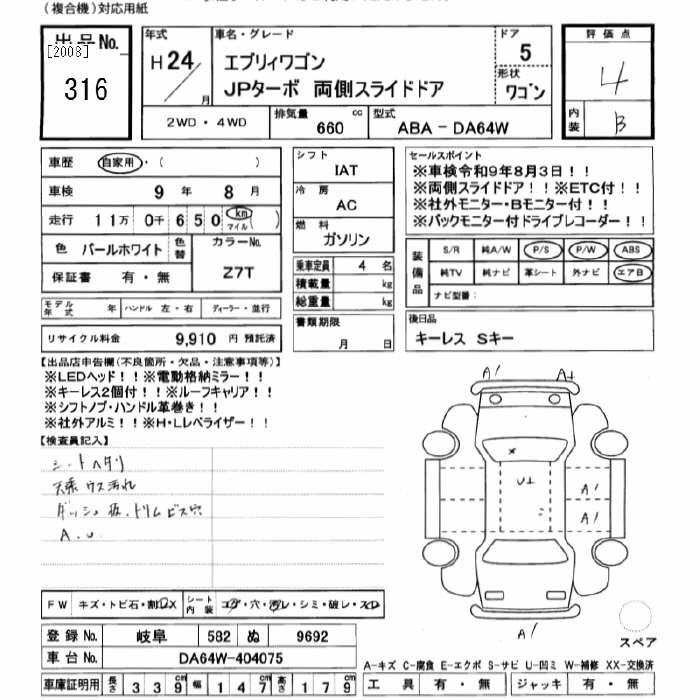 (複合機)対応用紙
出品No.
[2008]
316
年式
H24/ 月
車名・グレード
エブリィワゴン
JPターボ 両側スライドドア
ドア
5
形状
ワゴン
評価点
4
内装
B
2WD・4WD
排気量
660 cc
型式
ABA-DA64W
車歴 自家用・( )
車検 9年 8月
走行 11万0千650 km マイル ( )
色 パールホワイト
色替
カラーNo.
Z7T
保証書 有・無
モデル年式 年 ハンドル 左・右 ディーラー・並行
リサイクル料金 9,910 円 預託済
シフト
IAT
冷房
AC
燃料
ガソリン
乗車定員 4 名
積載量 kg
総重量 kg
書類期限
月 日
セールスポイント
※車検令和9年8月3日!!
※両側スライドドア!!※ETC付!!
※社外モニター・Bモニター付!!
※バックモニター付ドライブレコーダー!!
装備品
S/R 純A/W P/S P/W ABS
純TV 純ナビ 革シート 外ナビ エアB
ナビ型番:
後日品
キーレス Sキー
【出品店申告欄(不良箇所・欠品・注意事項等)】
※LEDヘッド!!※電動格納ミラー!!
※キーレス2個付!!※ルーフキャリア!!
※シフトノブ・ハンドル革巻き!!
※社外アルミ!!※H・Lレベライザー!!
【検査員記入】
シートヘタリ
天張ウス汚れ
ダッシュ板、トリムビス穴
A.U.
A1
A1
×
U1
A1
A1
A1
FW キズ・トビ石・割・X
シート内装 コゲ・穴・汚レ・シミ・破レ・スレ
登録No. 岐阜 582 ぬ 9692
車台No. DA64W-404075
車庫証明用 長さ 339 幅 147 高さ 179
スペア
A-キズ C-腐食 E-エクボ S-サビ U-凹ミ W-補修 XX-交換済
工具 有・無 ジャッキ 有・無